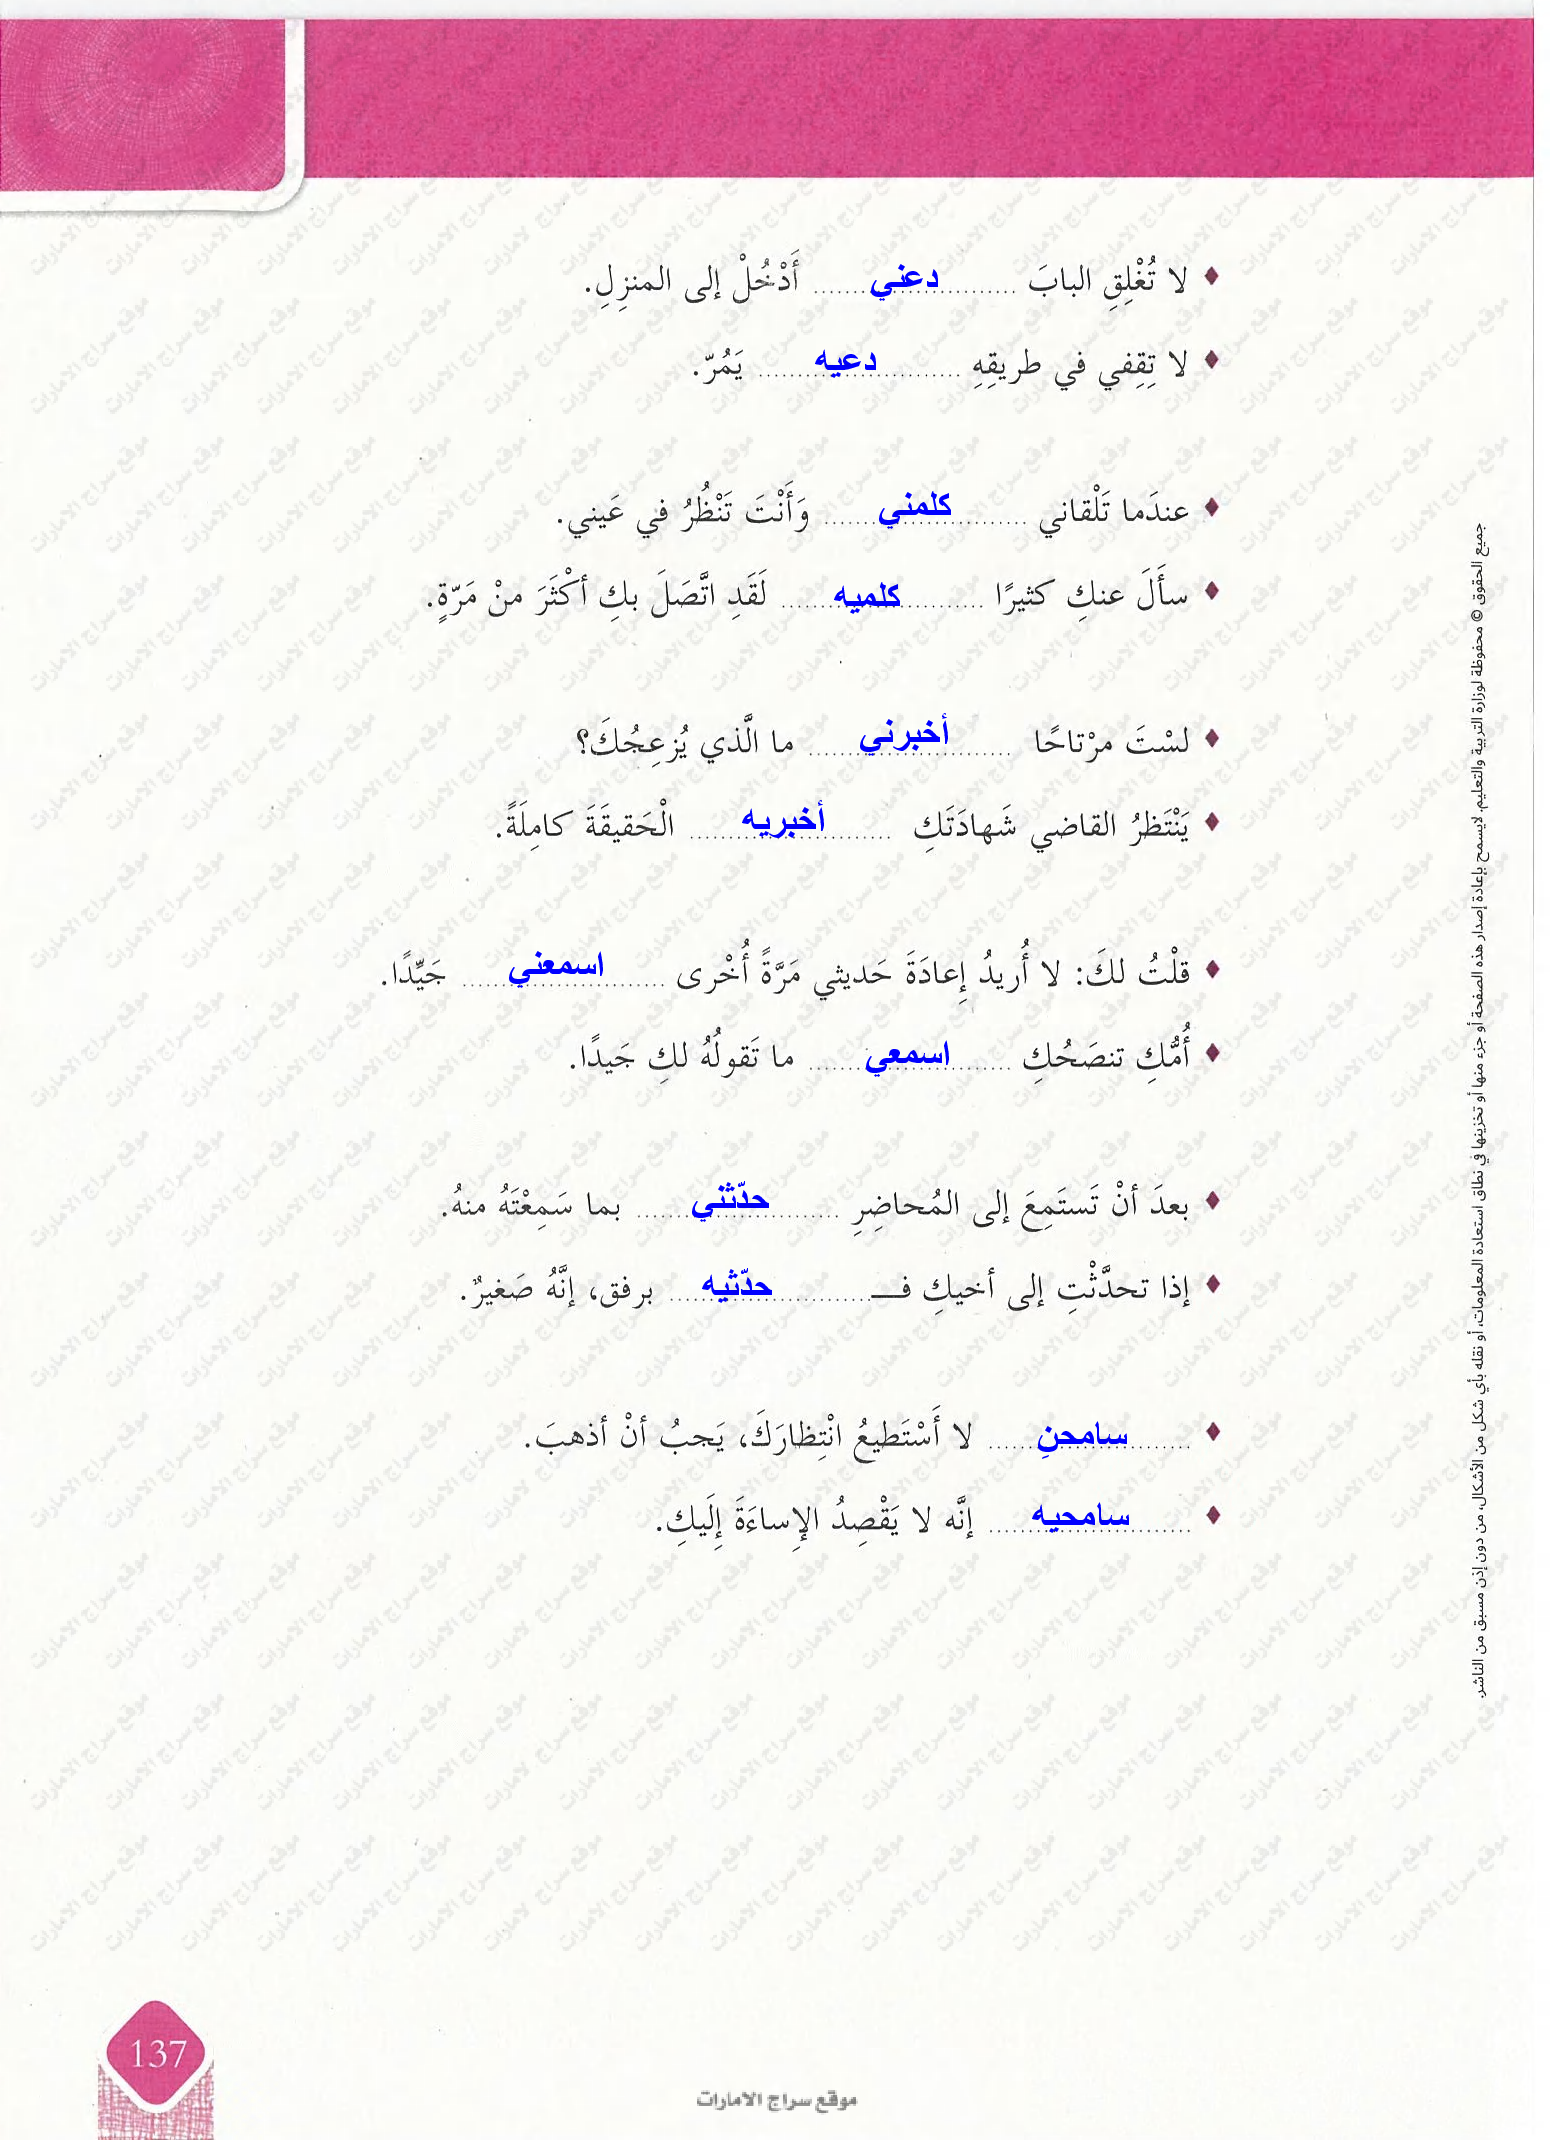 لا تُغْلِقِ البابَ دعني أَدْخُلْ إلى المنزِلِ.
لا تِقِفي في طريقِهِ دعيه يَمُرّ.
عندَما تَلْقاني كلمني وَأَنْتَ تَنْظُرُ في عَيني.
سأَلَ عنكِ كثيرًا كلميه لَقَدِ اتَّصَلَ بكِ أكْثَرَ منْ مَرّةٍ.
لسْتَ مرْتاحًا أخبرني ما الَّذي يُزعِجُكَ؟
يَنْتَظرُ القاضي شَهادَتَكِ أخبريه الْحَقيقَةَ كامِلَةً.
قلْتُ لكَ: لا أُريدُ إعادَةَ حَديثي مَرَّةً أُخْرى اسمعني جَيِّدًا.
أُمُّكِ تنصَحُكِ اسمعي ما تَقولُهُ لكِ جَيدًا.
بعدَ أنْ تَستَمِعَ إلى المُحاضِرِ حدّثني بما سَمِعْتَهُ منهُ.
إذا تحدَّثْتِ إلى أخيكِ فـ حدّثيه برفق، إنَّهُ صَغيرٌ.
سامحنِ لا أَسْتَطيعُ انْتِظارَكَ، يَجبُ أنْ أذهبَ.
سامحيه إنَّه لا يَقْصِدُ الإساءَةَ إِلَيكِ.
جميع الحقوق © محفوظة لوزارة التربية والتعليم. لايسمح بإعادة إصدار هذه الصفحة أو جزء منها أو تخزينها في نطاق استعادة المعلومات، أو نقله بأي شكل من الأشكال، من دون إذن مسبق من الناشر.
137
موقع سراج الامارات